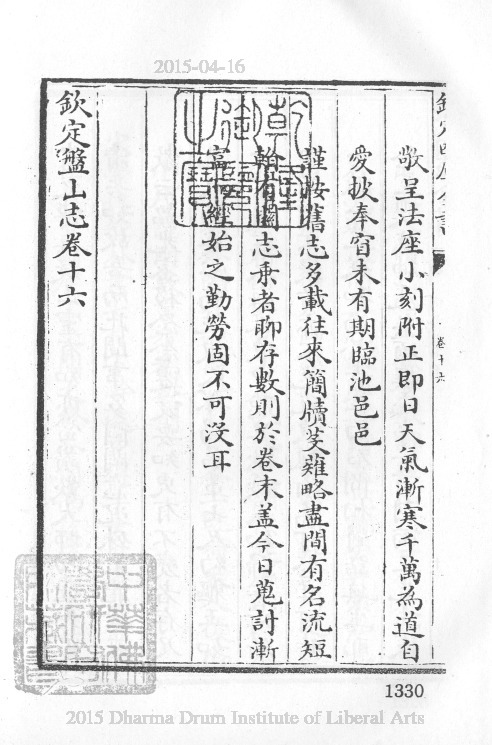 2015-04-16
欽定四庫全書
卷十六
敬呈法座小刻附正即日天氣漸寒千萬為道自
愛披奉窅未有期臨池邑邑
謹按舊志多載往來簡牘芟薙略盡間有名流短
翰有關志乘者聊存數則於卷末蓋今日蒐討漸
富經始之勤勞固不可沒耳
欽定盤山志卷十六
乾隆御覽之寶
1330
2015 Dharma Drum Institute of Liberal Arts